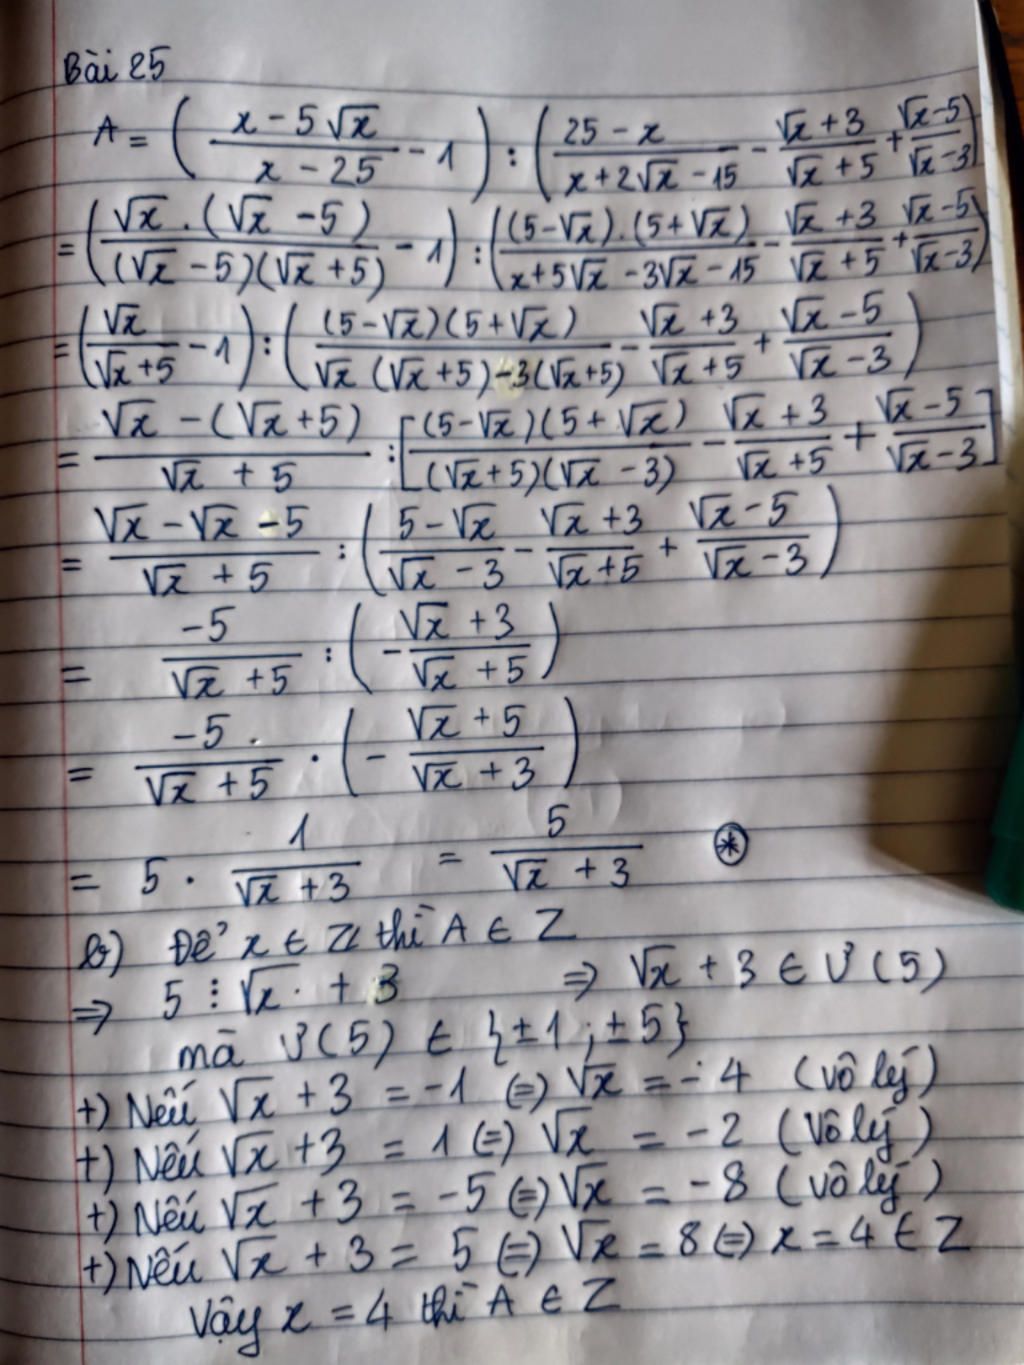 Bài 25
A = ( (x - 5√x)/(x - 25) - 1 ) : ( (25 - x)/(x + 2√x - 15) - (√x + 3)/(√x + 5) + (√x - 5)/(√x - 3) )
= ( (√x . (√x - 5))/((√x - 5)(√x + 5)) - 1 ) : ( ((5 - √x).(5 + √x))/(x + 5√x - 3√x - 15) - (√x + 3)/(√x + 5) + (√x - 5)/(√x - 3) )
= ( √x/(√x + 5) - 1 ) : ( ((5 - √x)(5 + √x))/(√x (√x + 5) - 3(√x + 5)) - (√x + 3)/(√x + 5) + (√x - 5)/(√x - 3) )
= (√x - (√x + 5))/(√x + 5) : [ ((5 - √x)(5 + √x))/((√x + 5)(√x - 3)) - (√x + 3)/(√x + 5) + (√x - 5)/(√x - 3) ]
= (√x - √x - 5)/(√x + 5) : ( (5 - √x)/(√x - 3) - (√x + 3)/(√x + 5) + (√x - 5)/(√x - 3) )
= -5/(√x + 5) : ( - (√x + 3)/(√x + 5) )
= -5/(√x + 5) . ( - (√x + 5)/(√x + 3) )
= 5 . 1/(√x + 3) = 5/(√x + 3) ⊛
b) Để x ∈ Z thì A ∈ Z
⇒ 5 ⋮ √x + 3 ⇒ √x + 3 ∈ Ư(5)
mà Ư(5) ∈ {±1 ; ±5}
+) Nếu √x + 3 = -1 (=) √x = -4 (vô lý)
+) Nếu √x + 3 = 1 (=) √x = -2 (vô lý)
+) Nếu √x + 3 = -5 (=) √x = -8 (vô lý)
+) Nếu √x + 3 = 5 (=) √x = 8 (=) x = 4 ∈ Z
Vậy x = 4 thì A ∈ Z